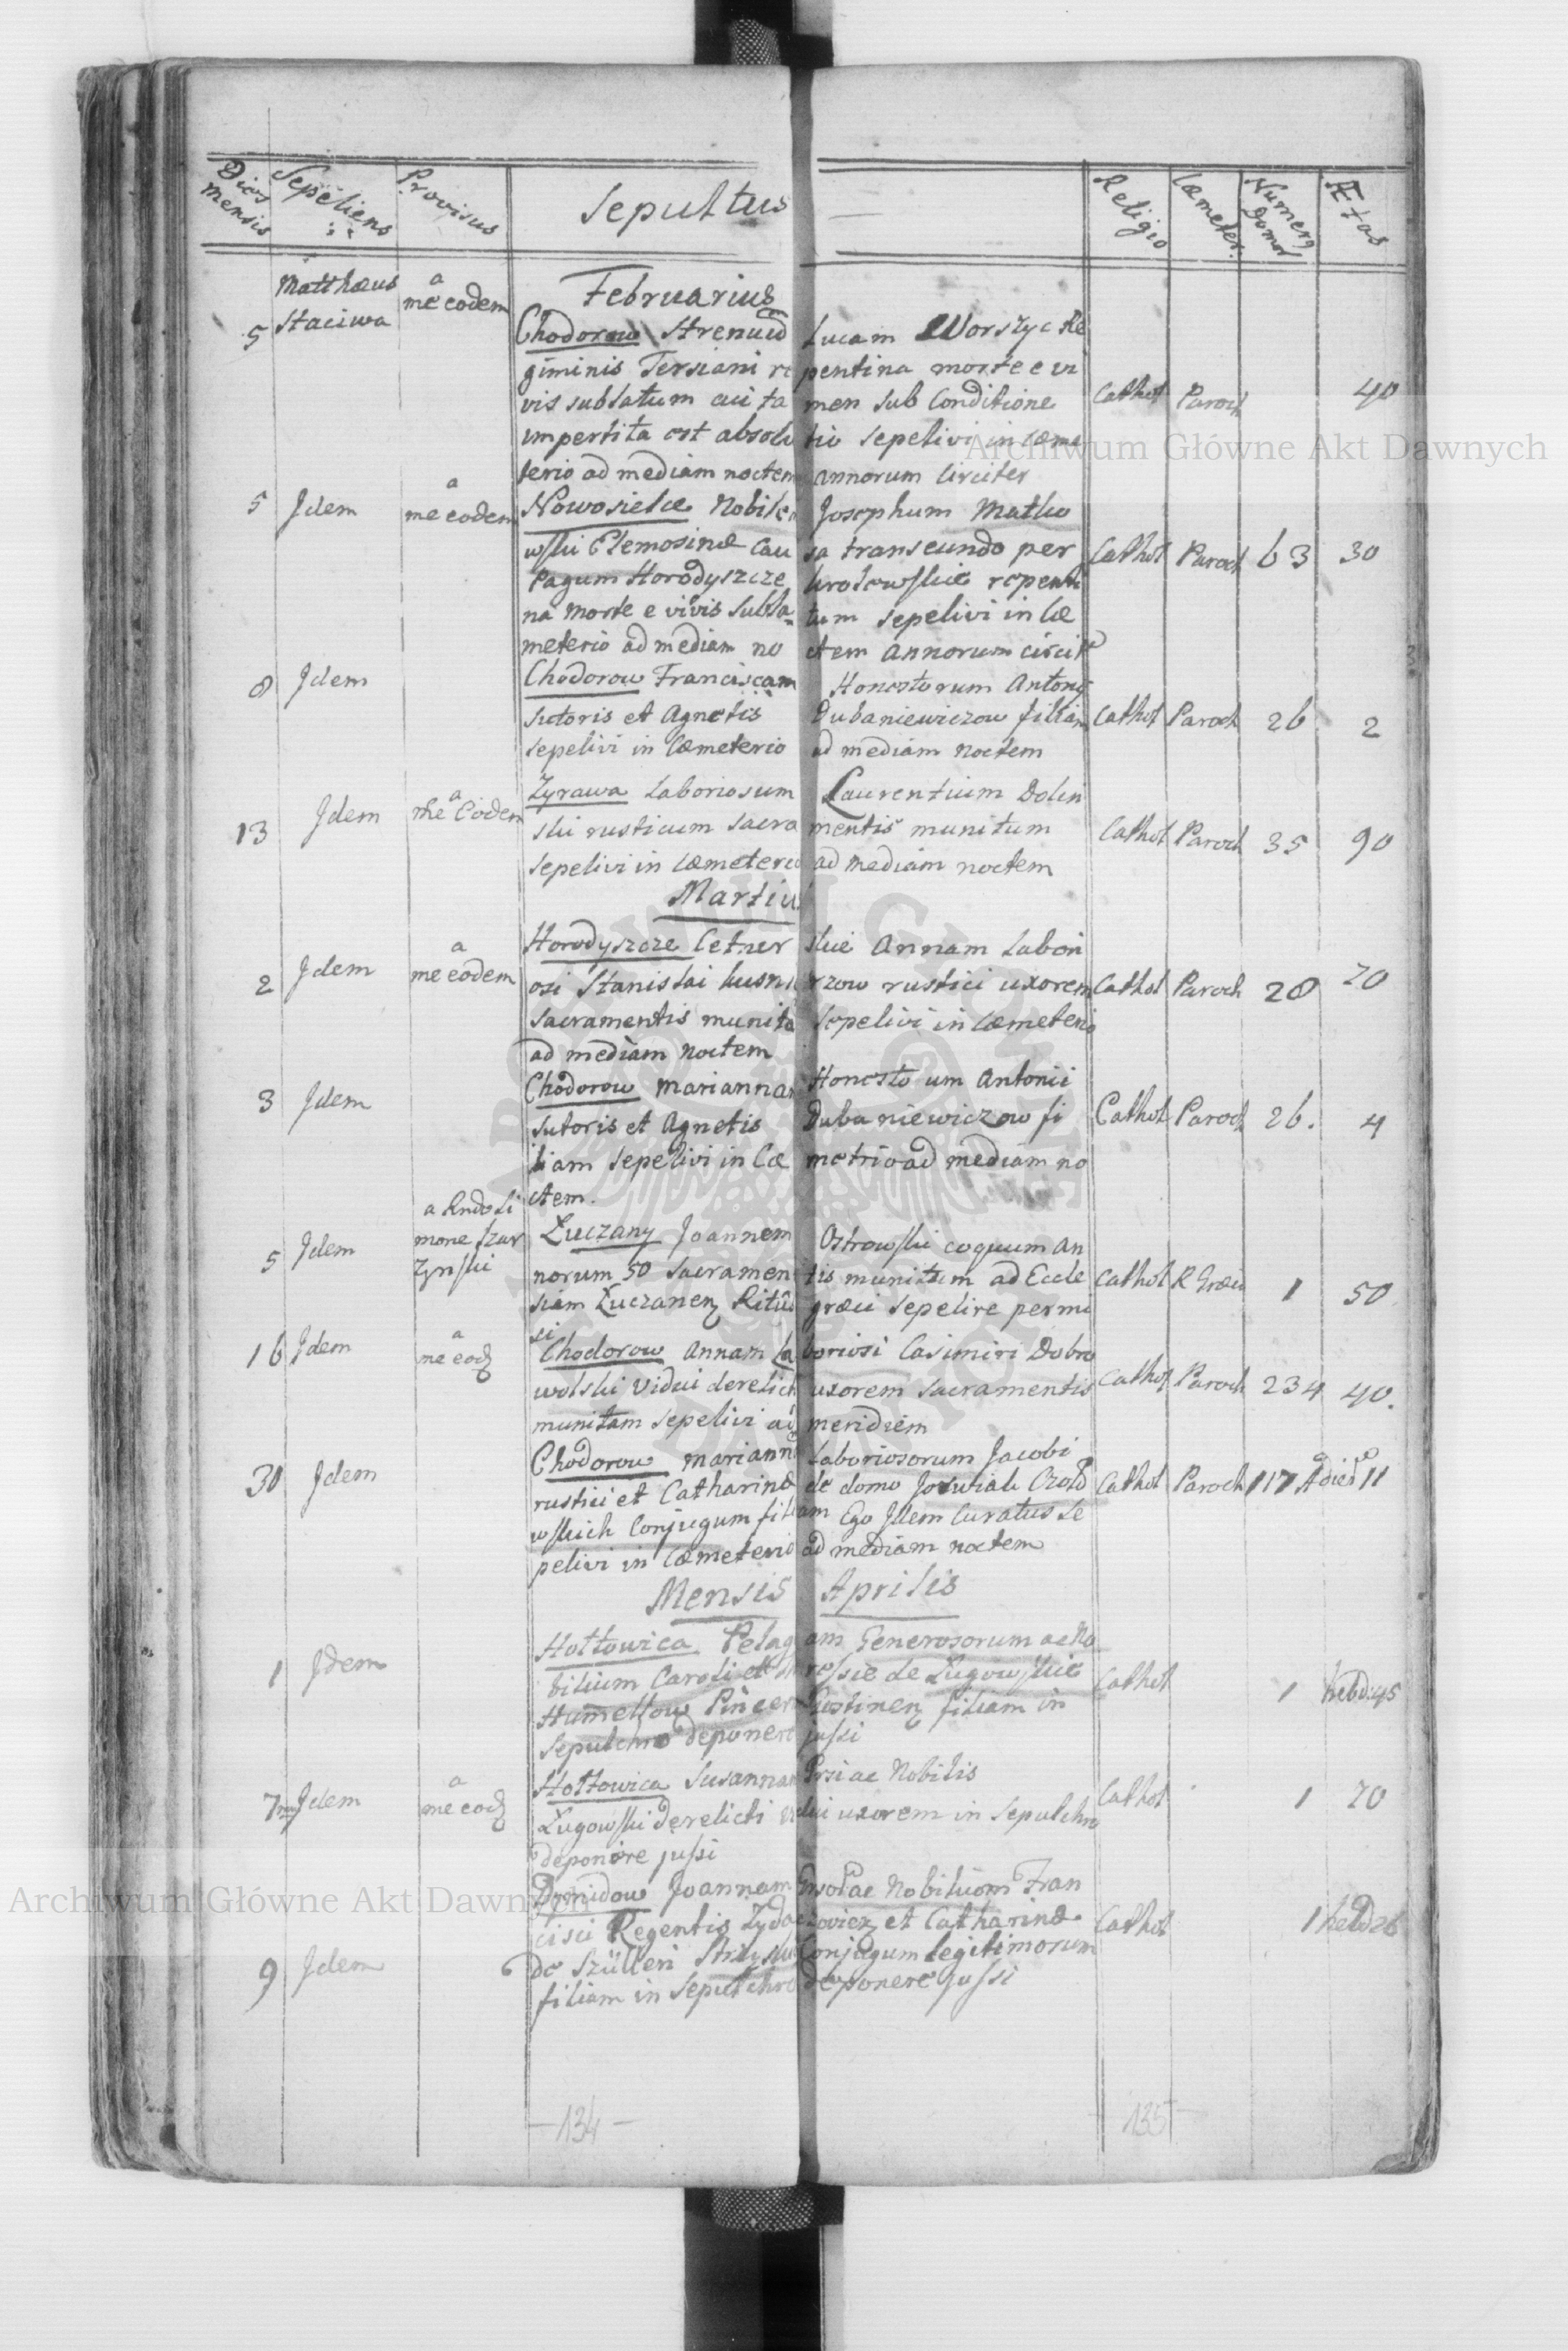 Dies mensis
Sepeliens
Provisus
Sepultus
Religio
Cæmeter.
Numerg Domog
Ætas
Februarius
5
Matthæus Staciwa
a me eodem
Chodorow Strenuū Lucam Worszyc Re
giminis Tersiani repentina morte e vi
vis sublatum cui tamen sub Conditione
impertita est absolutio sepelivi in Cæme
terio ad mediam noctem annorum Circiter
Cathol Paroch 40
5 Jdem
a me eodem
Nowosielce Nobilem Josephum Matko
wski Elemosinæ Causa transeundo per
Pagum Horodyszcze krolewskie repenti
na morte e vivis subla=tum sepelivi in Cæ
meterio ad mediam noctem annorum circite
Cathol Paroch 63 30
8 Jdem
Chodorow Franciscam Honestorum Antonij
Sutoris et Agnetis Dubaniewiczow filiam
sepelivi in Cæmeterio ad mediam noctem
Cathol Paroch 26 2
13 Jdem
a me Eodem
Zyrawa Laboriosum Laurentium Dolin
ski rusticum sacramentis munitum
sepelivi in Cæmeterio ad mediam noctem
Cathol Paroch 35 90
Martius
2 Jdem
a me eodem
Horodyszcze Cetnerskie Annam Labori
osi Stanislai kusnirzow rustici uxorem
sacramentis munitā sepelivi in Cæmeterio
ad mediam noctem
Cathol Paroch 28 70
3 Jdem
Chodorow mariannam Honesto um Antonii
sutoris et Agnetis Dubaniewiczow fi
liam sepelivi in Cæ metrio ad mediam no
ctem.
Cathol Paroch 26. 4
5 Jdem
a Rndo Si
mone Szar
zynski
Łuczany Joannem Ostrowski coquum an
norum 50 sacramentis munitum ad Eccle
siam Łuczanen Ritūs græci sepelire permi
si
Cathol R Græci 1 50
16 Jdem
a me eod
Chodorow Annam Laboriosi Casimiri Dobro
wolski Vidui derelict uxorem sacramentis
munitam sepelivi ad meridiem
Cathol Paroch 234 40.
30 Jdem
Chodorow mariannā Laboriosorum Jacobi
rustici et Catharinæ de domo Jozwiak
wskich Conjugum filiam Ego Jdem Curatus Se
pelivi in Cæmeterio ad mediam noctem
Cathol Paroch 117 dier 11
Mensis Aprilis
1 Jdem
Hołłowica Pelagiam Generosorum ac No
bilium Caroli et de Ługowskie
Pincer filiam in
Sepulchro deponere jussi
Cathol 1 hebd: 45
7 Jdem
a me eod
Hołłowica Susannam Grsi ac Nobilis
Ługowski derelicti vidui uxorem in Sepulchro
deponere jussi
Cathol 1 70
9 Jdem
Joannam Grsor ac Nobilium Fran
cisci Regentis Zydaczovien et Catharinæ
de Szülleri Conjugum legitimorum
filiam in Sepulchro deponere jussi
Cathol 1 hebd 26
- 134 -
135 -
Archiwum Główne Akt Dawnych
Archiwum Główne Akt Dawnych